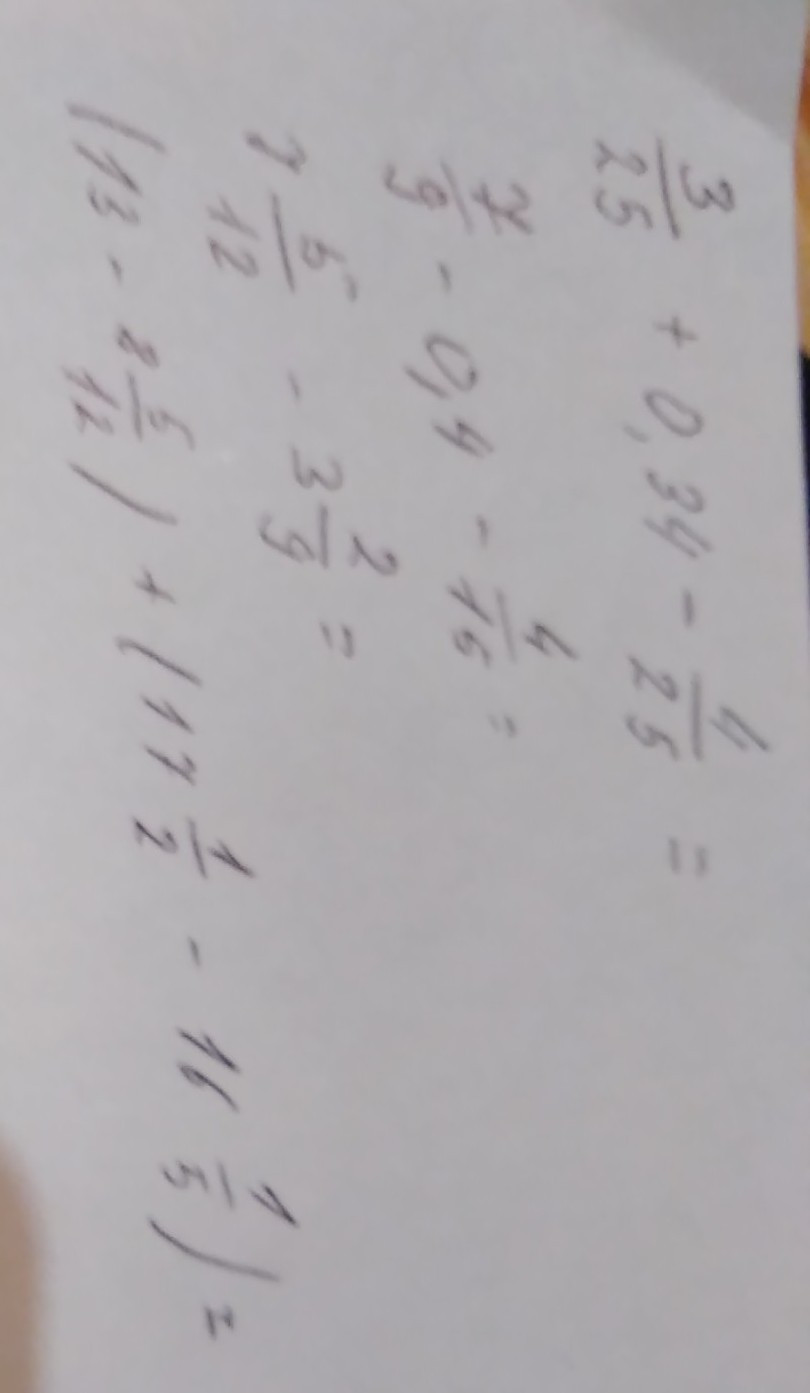 3/25 + 0,34 - 4/25 =
7/9 - 0,4 - 4/15 =
7 5/12 - 3 2/9 =
(13 - 8 5/12) + (17 1/2 - 16 1/5) =